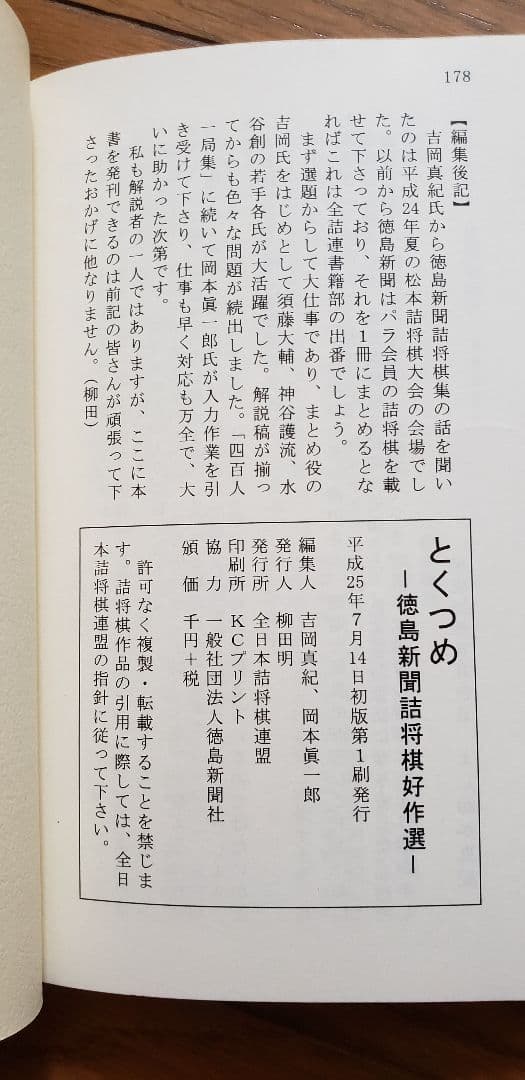 178
【編集後記】
吉岡真紀氏から徳島新聞詰将棋集の話を聞い
たのは平成24年夏の松本詰将棋大会の会場でし
た。以前から徳島新聞はパラ会員の詰将棋を載
せて下さっており、それを1冊にまとめるとな
ればこれは全詰連書籍部の出番でしょう。
まず選題からして大仕事であり、まとめ役の
吉岡氏をはじめとして須藤大輔、神谷護流、水
谷創の若手各氏が大活躍でした。解説稿が揃っ
てからも色々な問題が続出しました。「四百人
一局集」に続いて岡本眞一郎氏が入力作業を引
き受けて下さり、仕事も早く対応も万全で、大
いに助かった次第です。
私も解説者の一人ではありますが、ここに本
書を発刊できるのは前記の皆さんが頑張って下
さったおかげに他なりません。（柳田）
とくつめ
―徳島新聞詰将棋好作選―
平成25年7月14日初版第1刷発行
編集人 吉岡真紀、岡本眞一郎
発行人 柳田明
発行所 全日本詰将棋連盟
印刷所 KCプリント
協力 一般社団法人徳島新聞社
頒価 千円＋税
許可なく複製・転載することを禁じま
す。詰将棋作品の引用に際しては、全日
本詰将棋連盟の指針に従って下さい。